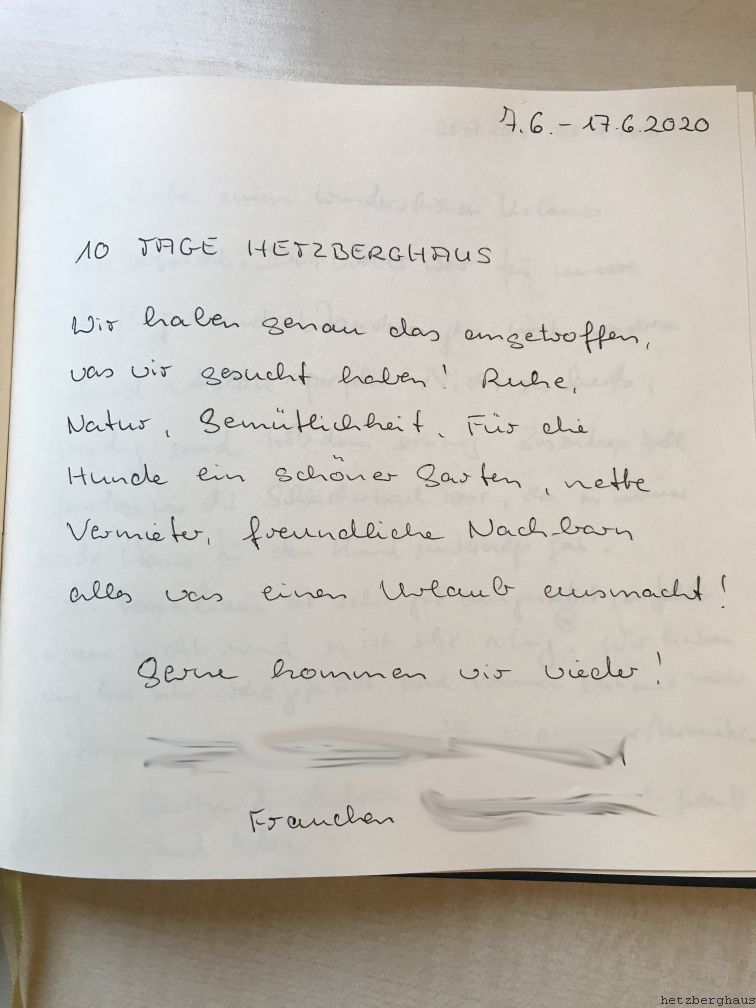 7.6. - 17.6.2020
10 TAGE HETZBERGHAUS
Wir haben genau das angetroffen,
was wir gesucht haben! Ruhe,
Natur, Gemütlichkeit. Für die
Hunde ein schöner Garten, nette
Vermieter, freundliche Nachbarn
alles was einen Urlaub ausmacht!
Gerne kommen wir wieder!
Frauchen
hetzberghaus